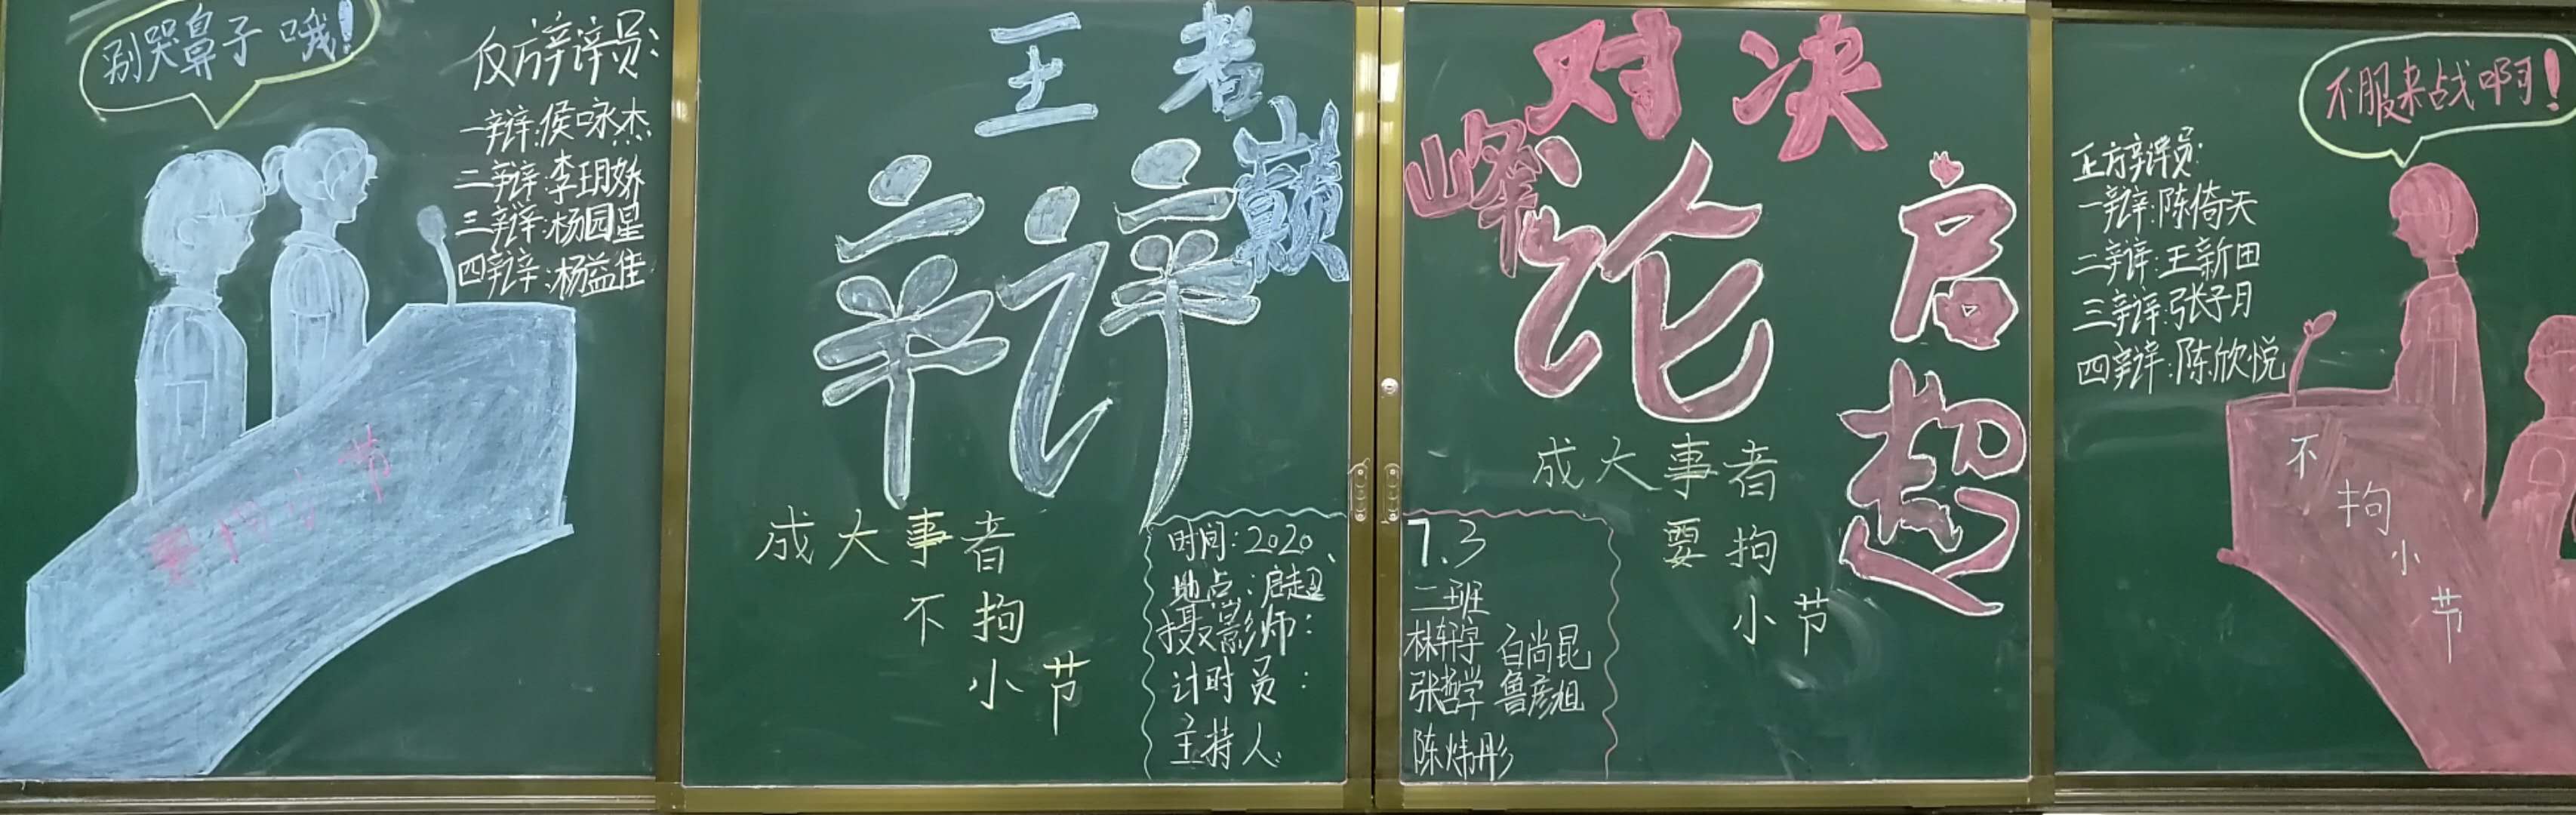 别哭鼻子哦!
反方辩辩员:
一辩:侯咏杰
二辩:李玥娇
三辩:杨园星
四辩:杨益佳
要拘小节
王者 对决
巅峰
辩论
启超
成大事者
不拘
小节
成大事者
要拘
小节
时间:2020、7.3
地点:启超二班
摄影师:林轩宇 白尚昆
计时员:张哲学 鲁彦旭
主持人:陈炜彤
不服来战啊!
正方辩辩员:
一辩:陈倚天
二辩:王新田
三辩:张子月
四辩:陈欣悦
不拘小节